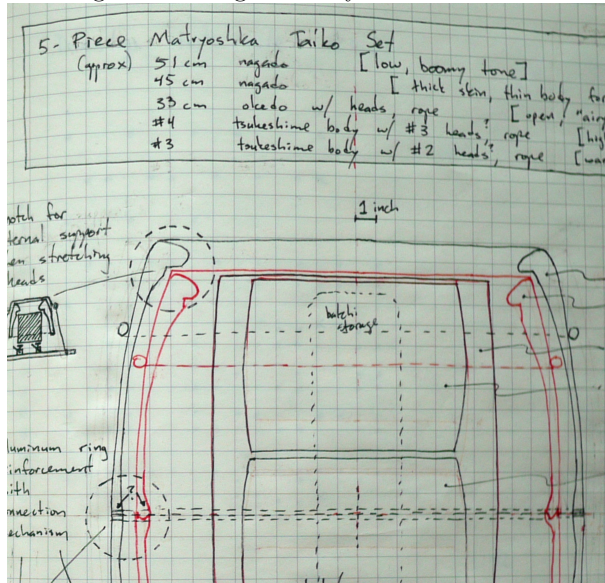 5- Piece Matryoshka Taiko Set
(approx) 51 cm nagado [low, boomy tone]
45 cm nagado [thick skin, thin body for
33 cm okedo w/ heads, rope [open, "airy
#4 tsukeshime body w/ #3 heads?, rope
#3 tsukeshime body w/ #2 heads?, rope
notch for
support
stretching
heads
1 inch
bachi
storage
aluminum ring
reinforcement
with
connection
mechanism
?